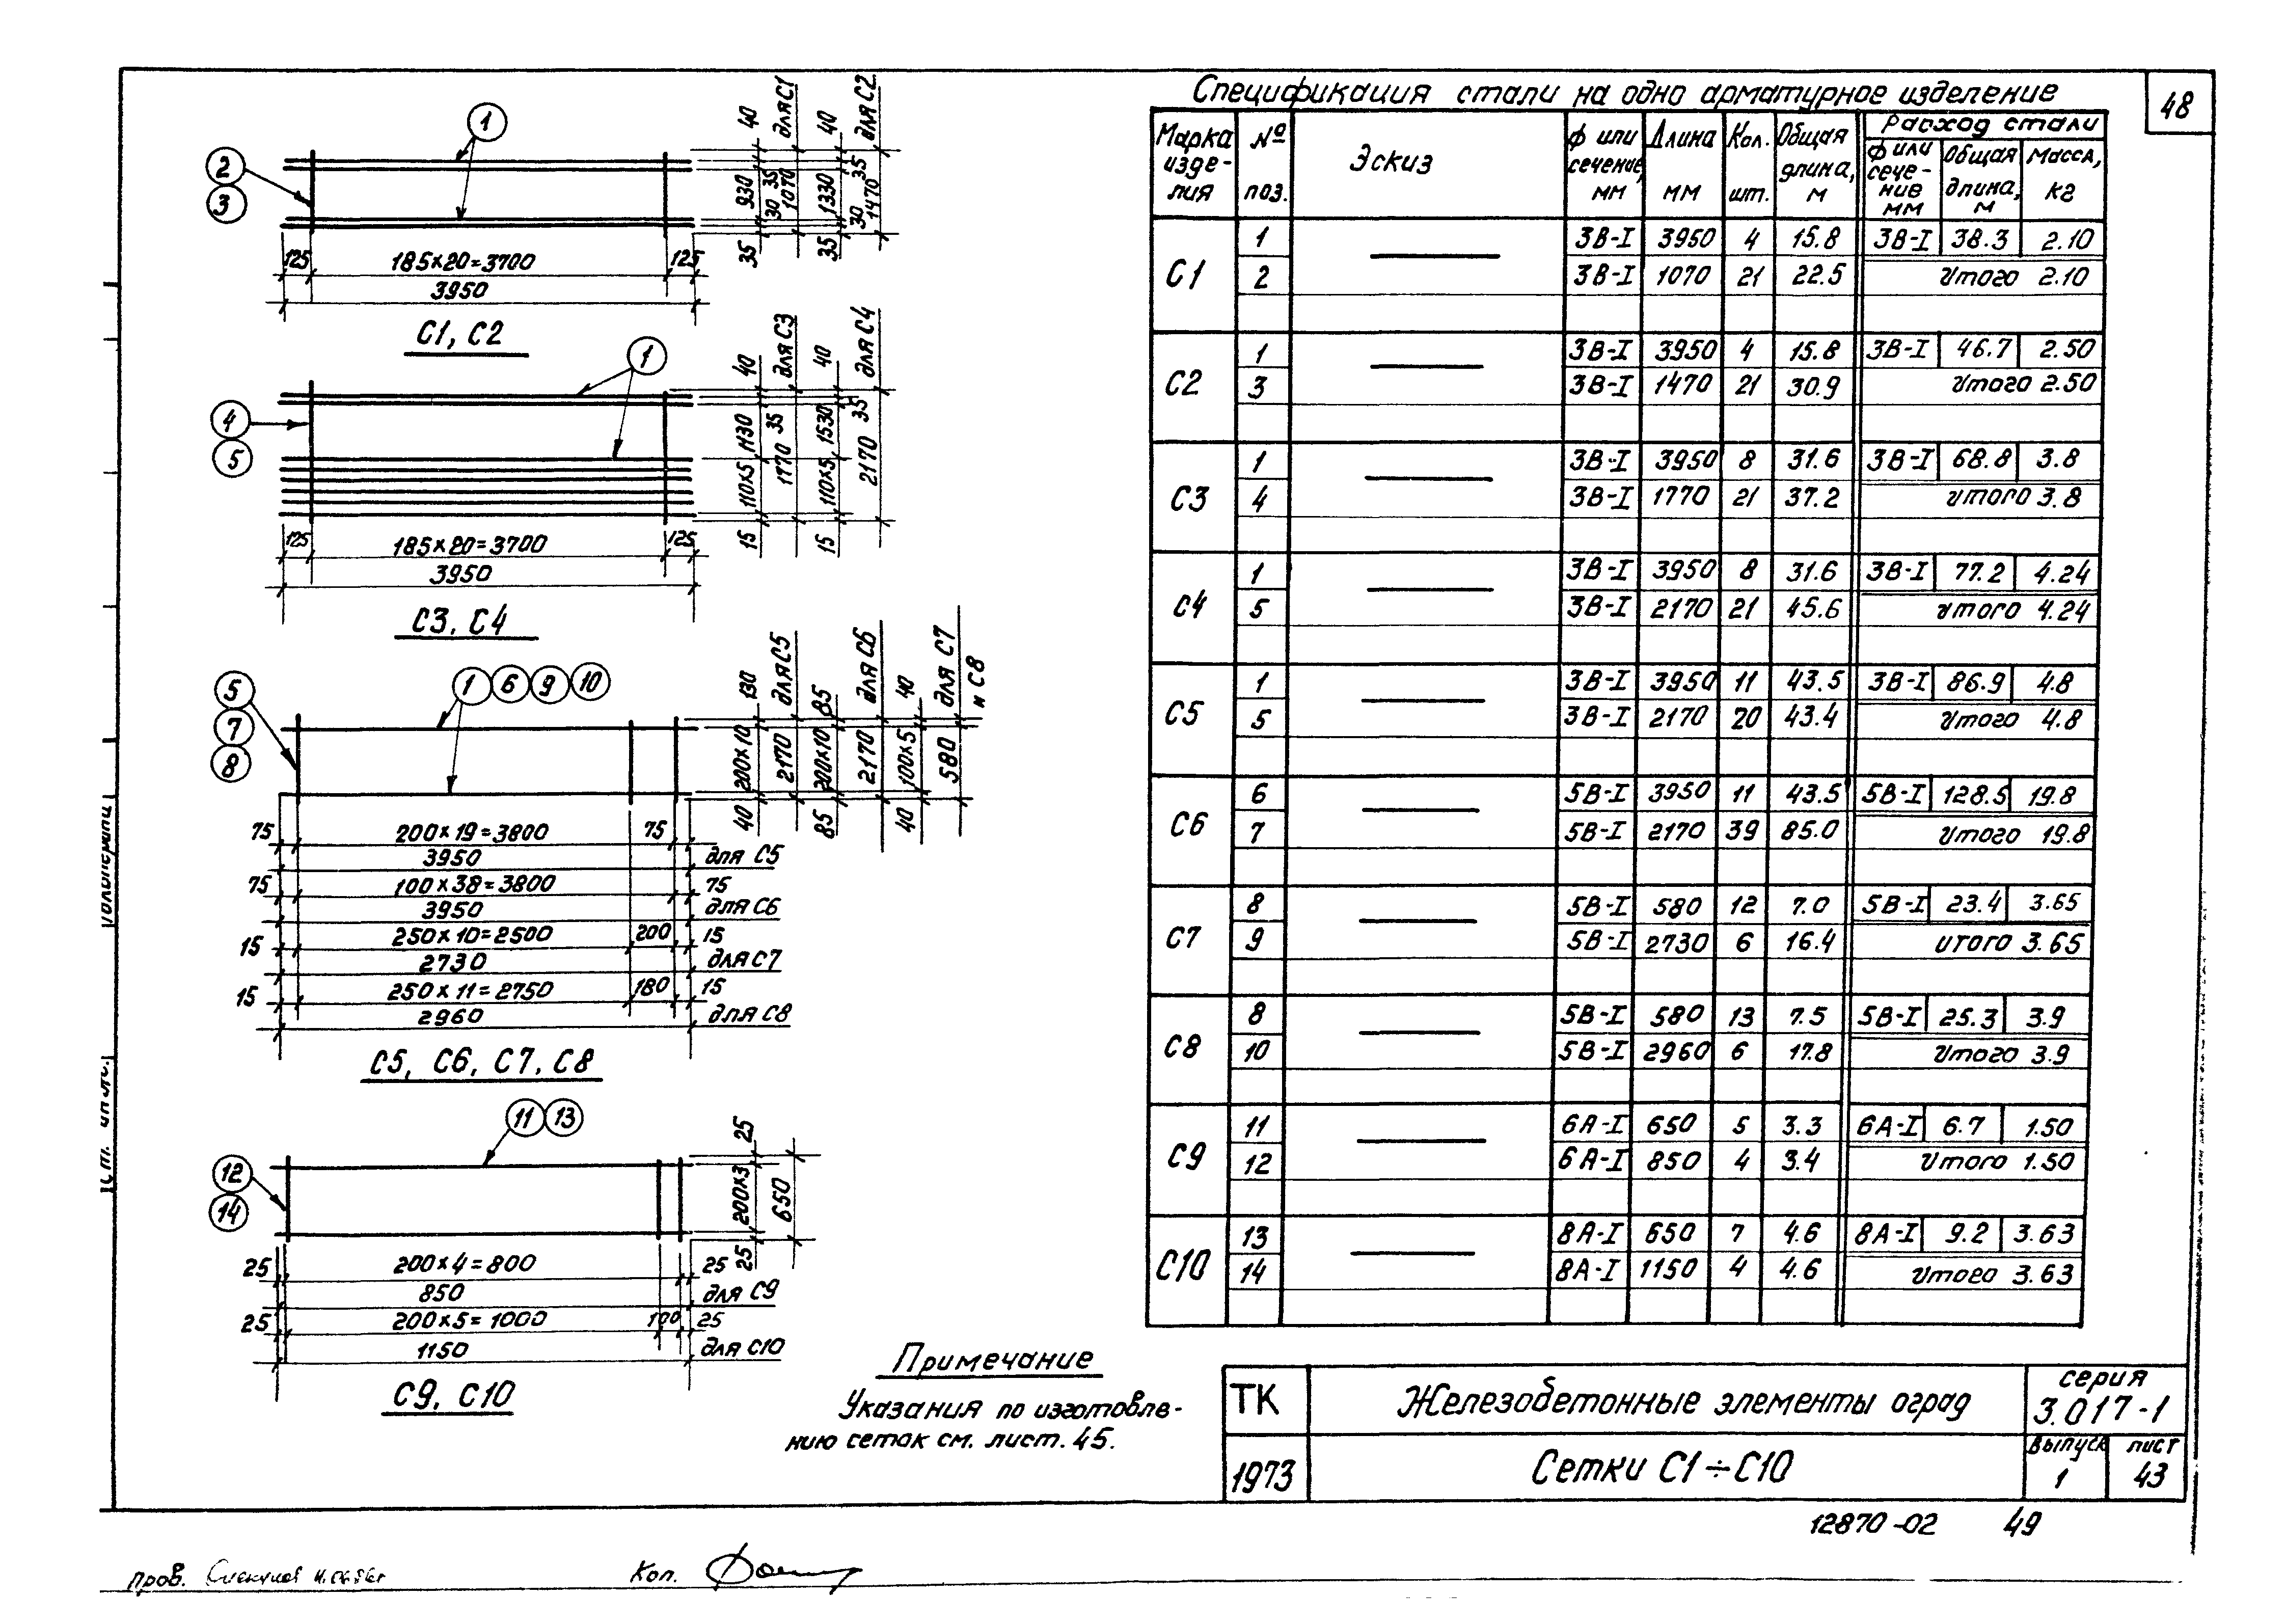 48
Спецификация стали на одно арматурное изделение
Марка изделия № поз. Эскиз ф или сечение, мм Длина мм Кол. шт. Общая длина, м Расход стали
ф или сечение мм Общая длина, м Масса, кг
С1 1 3В-I 3950 4 15.8 3В-I 38.3 2.10
2 3В-I 1070 21 22.5 Итого 2.10
С2 1 3В-I 3950 4 15.8 3В-I 46.7 2.50
3 3В-I 1470 21 30.9 Итого 2.50
С3 1 3В-I 3950 8 31.6 3В-I 68.8 3.8
4 3В-I 1770 21 37.2 Итого 3.8
С4 1 3В-I 3950 8 31.6 3В-I 77.2 4.24
5 3В-I 2170 21 45.6 Итого 4.24
С5 1 3В-I 3950 11 43.5 3В-I 86.9 4.8
5 3В-I 2170 20 43.4 Итого 4.8
С6 6 5В-I 3950 11 43.5 5В-I 128.5 19.8
7 5В-I 2170 39 85.0 Итого 19.8
С7 8 5В-I 580 12 7.0 5В-I 23.4 3.65
9 5В-I 2730 6 16.4 Итого 3.65
С8 8 5В-I 580 13 7.5 5В-I 25.3 3.9
10 5В-I 2960 6 17.8 Итого 3.9
С9 11 6А-I 650 5 3.3 6А-I 6.7 1.50
12 6А-I 850 4 3.4 Итого 1.50
С10 13 8А-I 650 7 4.6 8А-I 9.2 3.63
14 8А-I 1150 4 4.6 Итого 3.63
1
2
3
125 185×20=3700 125
3950
35 930 40
30 35
1070 для С1
35 1330 40
30 35
1470 для С2
С1, С2
1
4
5
125 185×20=3700 125
3950
15 110×5 1130 40
35
1770 для С3
15 110×5 1530 40
35
2170 для С4
С3, С4
1 6 9 10
5
7
8
40 200×10 130
2170 для С5
85 200×10 85
2170 для С6
40 100×5 40
580 для С7 и С8
75 200×19=3800 75
3950 для С5
75 100×38=3800 75
3950 для С6
15 250×10=2500 200 15
2730 для С7
15 250×11=2750 180 15
2960 для С8
С5, С6, С7, С8
11 13
12
14
25 200×3 25
650
25 200×4=800 25
850 для С9
25 200×5=1000 100 25
1150 для С10
С9, С10
Примечание
Указания по изготовле-
нию сеток см. лист. 45.
ТК Железобетонные элементы оград серия 3.017-1
1973 Сетки С1÷С10 выпуск 1 лист 43
12870-02 49
Пров.
Коп.